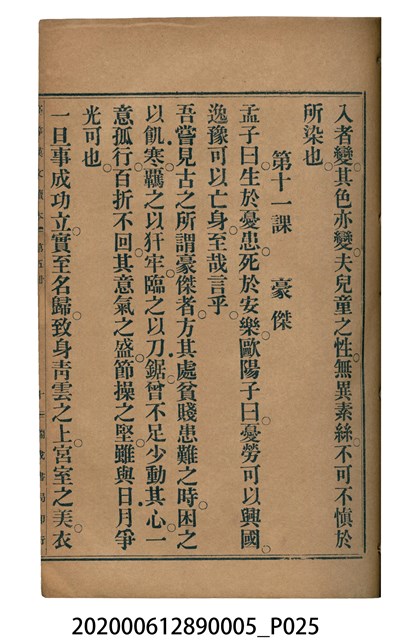 入者變其色亦變夫兒童之性無異素絲不可不慎於
所染也
第十一課　豪傑
孟子曰生於憂患死於安樂歐陽子曰憂勞可以興國
逸豫可以亡身至哉言乎
吾嘗見古之所謂豪傑者方其處貧賤患難之時困之
以飢寒羈之以犴牢臨之以刀鋸曾不足少動其心一
意孤行百折不回其意氣之盛節操之堅雖與日月爭
光可也
一旦事成功立實至名歸致身青雲之上宮室之美衣
202000612890005_P025